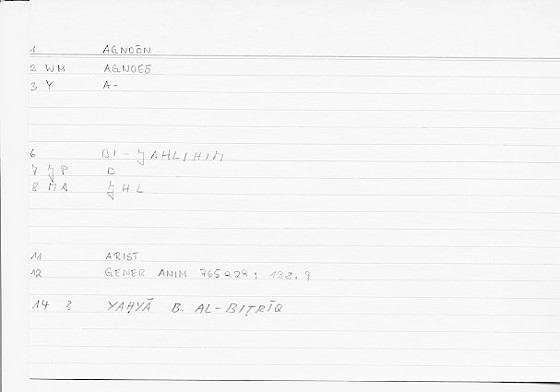 1 AGNOŌN
2 WM AGNOEŌ
3 Y A-
6 BI-ǦAHLIHIM
7 ǦP B
8 MA ǦHL
11 ARIST
12 GENER ANIM 765A29; 138.9
14 3 YAḤYĀ B. AL-BIṬRĪQ